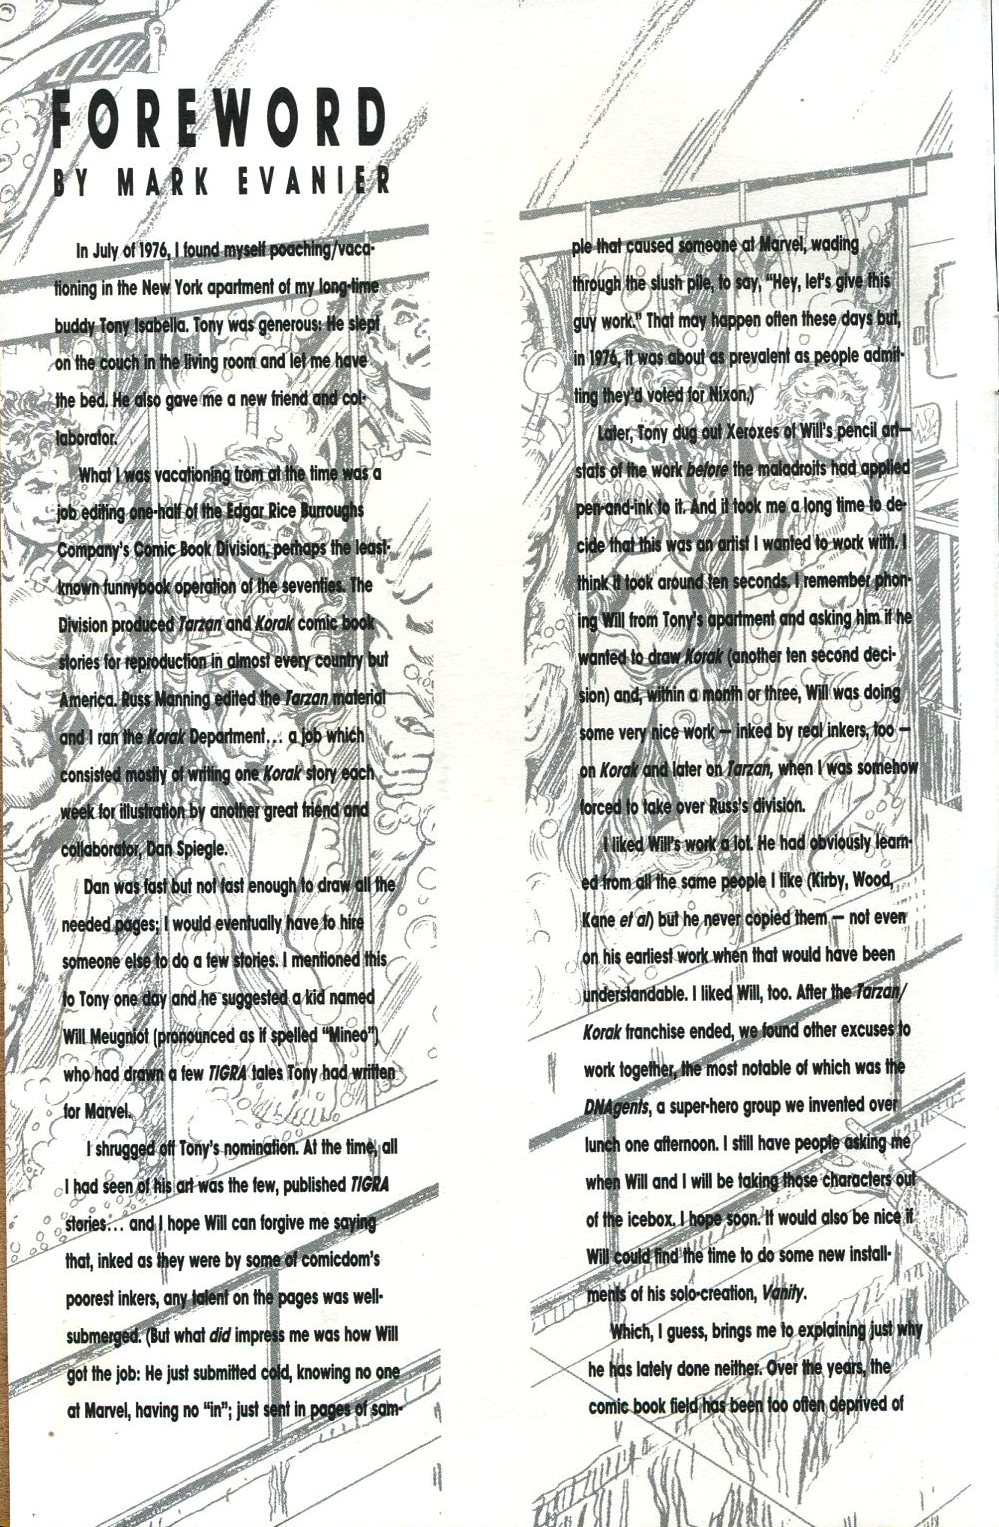 FOREWORD
BY MARK EVANIER
In July of 1976, I found myself poaching/vaca-
tioning in the New York apartment of my long-time
buddy Tony Isabella. Tony was generous: He slept
on the couch in the living room and let me have
the bed. He also gave me a new friend and col-
laborator.
What I was vacationing from at the time was a
job editing one-half of the Edgar Rice Burroughs
Company's Comic Book Division, perhaps the least-
known funnybook operation of the seventies. The
Division produced Tarzan and Korak comic book
stories for reproduction in almost every country but
America. Russ Manning edited the Tarzan material
and I ran the Korak Department... a job which
consisted mostly of writing one Korak story each
week for illustration by another great friend and
collaborator, Dan Spiegle.
Dan was fast but not fast enough to draw all the
needed pages; I would eventually have to hire
someone else to do a few stories. I mentioned this
to Tony one day and he suggested a kid named
Will Meugniot (pronounced as if spelled "Mineo")
who had drawn a few TIGRA tales Tony had written
for Marvel.
I shrugged off Tony's nomination. At the time, all
I had seen of his art was the few, published TIGRA
stories... and I hope Will can forgive me saying
that, inked as they were by some of comicdom's
poorest inkers, any talent on the pages was well-
submerged. (But what did impress me was how Will
got the job: He just submitted cold, knowing no one
at Marvel, having no "in"; just sent in pages of sam-
ple that caused someone at Marvel, wading
through the slush pile, to say, "Hey, let's give this
guy work." That may happen often these days but,
in 1976, it was about as prevalent as people admit-
ting they'd voted for Nixon.)
Later, Tony dug out Xeroxes of Will's pencil art—
stats of the work before the maladroits had applied
pen-and-ink to it. And it took me a long time to de-
cide that this was an artist I wanted to work with. I
think it took around ten seconds. I remember phon-
ing Will from Tony's apartment and asking him if he
wanted to draw Korak (another ten second deci-
sion) and, within a month or three, Will was doing
some very nice work — inked by real inkers, too —
on Korak and later on Tarzan, when I was somehow
forced to take over Russ's division.
I liked Will's work a lot. He had obviously learn-
ed from all the same people I like (Kirby, Wood,
Kane et al) but he never copied them — not even
on his earliest work when that would have been
understandable. I liked Will, too. After the Tarzan/
Korak franchise ended, we found other excuses to
work together, the most notable of which was the
DNAgents, a super-hero group we invented over
lunch one afternoon. I still have people asking me
when Will and I will be taking those characters out
of the icebox. I hope soon. It would also be nice if
Will could find the time to do some new install-
ments of his solo-creation, Vanity.
Which, I guess, brings me to explaining just why
he has lately done neither. Over the years, the
comic book field has been too often deprived of